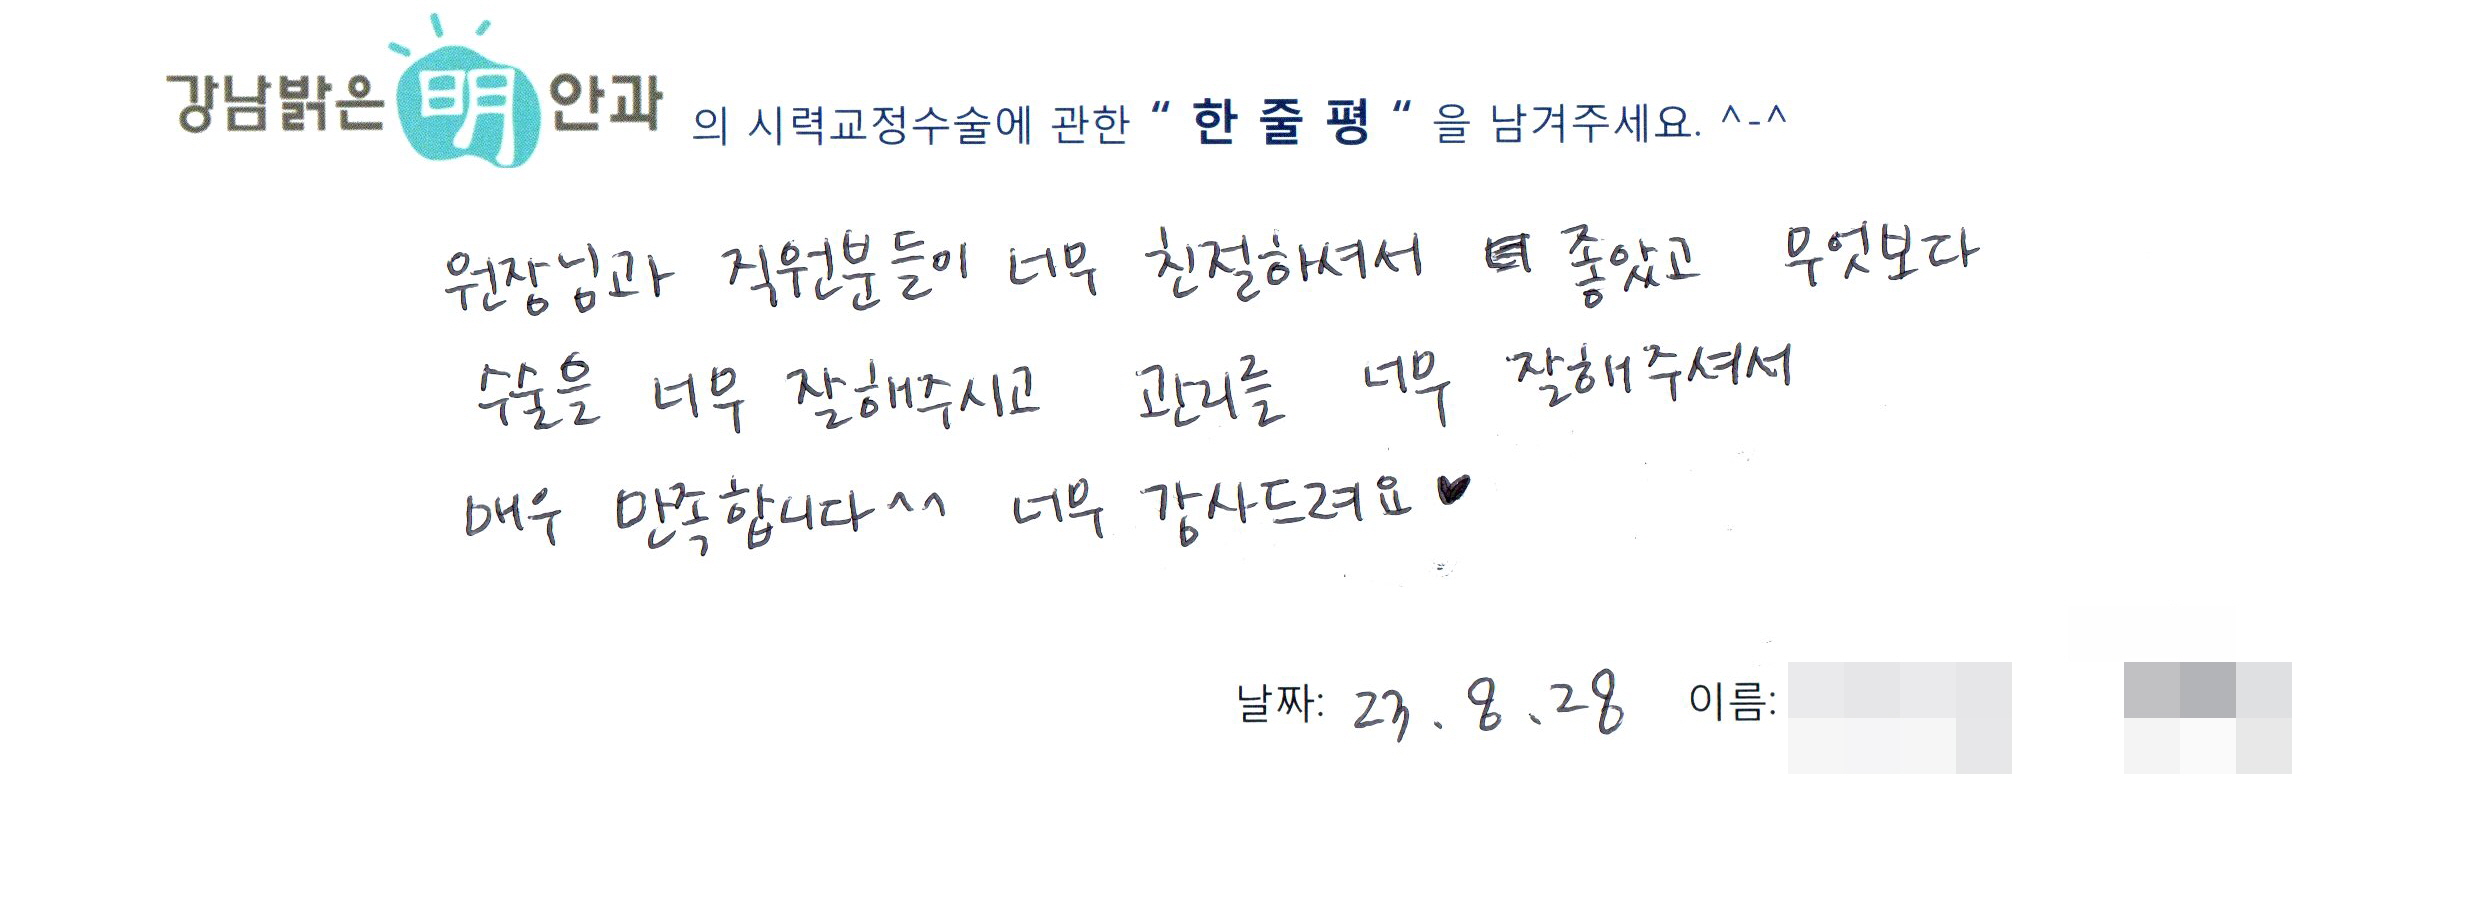 강남밝은 明 안과 의 시력교정수술에 관한 “ 한 줄 평 “ 을 남겨주세요. ^-^
원장님과 직원분들이 너무 친절하셔서 좋았고 무엇보다
수술을 너무 잘해주시고 관리를 너무 잘해주셔서
매우 만족합니다^^ 너무 감사드려요♥
날짜: 23. 8. 28 이름: